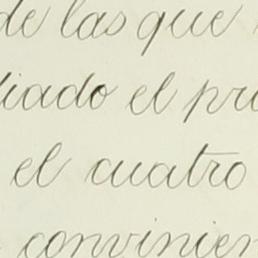 de las que
diado el pri
el cuatro
convinien